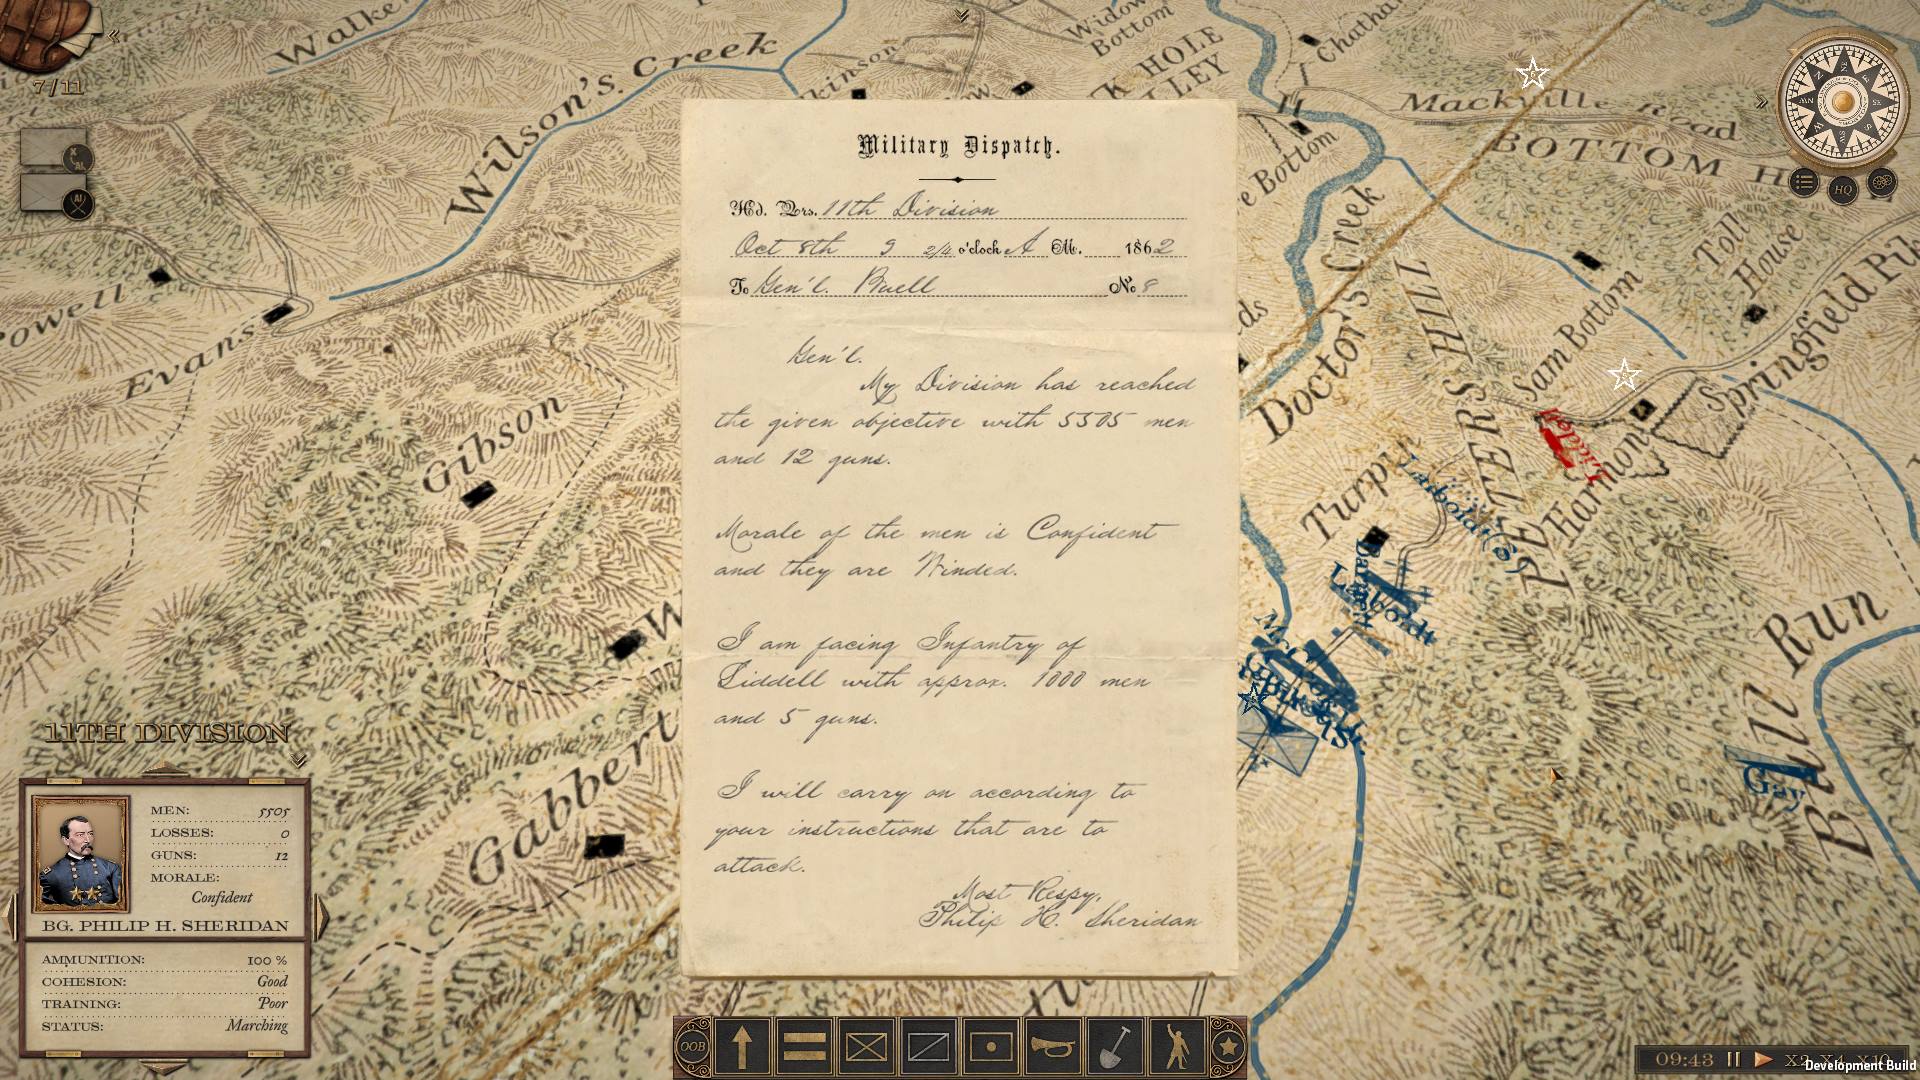 Walke
Wilson's Creek
kinson
Widow
Bottom
K HOLE
LEY
Chatha
Mackville Road
BOTTOM H
e Bottom
7/11
AI
HQ
Powell
Evans
Gibson
Gabbert
W
Doctor's Creek
PETERS HILL
Sam Bottom
Toll
House
Springfield Pik
Turpin
Harmon
Liddell
Laiboldt(S)
Barnett
Laiboldt
Gay
Bull Run
Military Dispatch.
Hd. Qrs. 11th Division
Oct 8th 9 2/4 o'clock A M. 1862
To Gen'l. Buell No 8
Gen'l.
My Division has reached
the given objective with 5505 men
and 12 guns.
Morale of the men is Confident
and they are Winded.
I am facing Infantry of
Liddell with approx. 1000 men
and 5 guns.
I will carry on according to
your instructions that are to
attack.
Most Respy,
Philip H. Sheridan
11TH DIVISION
MEN: 5505
LOSSES: 0
GUNS: 12
MORALE:
Confident
BG. PHILIP H. SHERIDAN
AMMUNITION: 100 %
COHESION: Good
TRAINING: Poor
STATUS: Marching
OOB
09:43 X2 X4 X10
Development Build